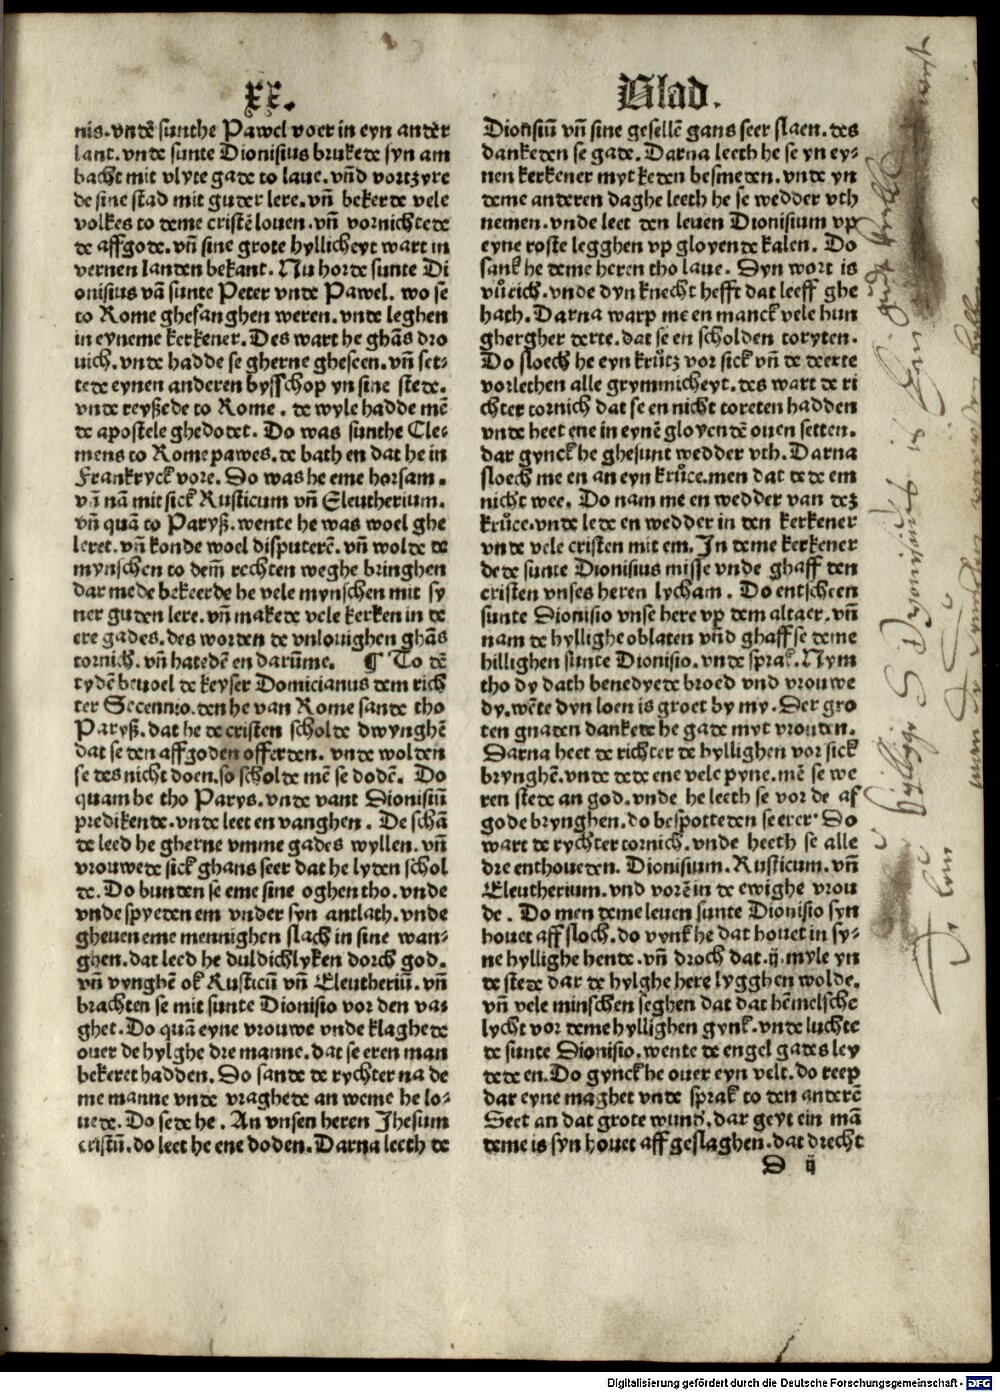 XX.
Blad.
nis. vnde sunthe Pawel voer in eyn ander
lant. vnde sunte Dionisius brukede syn am
bacht mit vlyte gade to laue. vnd vortzyre
de sine stad mit guder lere. vñ bekerde vele
volkes to deme cristē louen. vñ vornichtede
de affgode. vñ sine grote hyllicheyt wart in
vernen landen bekant. Nu horde sunte Di
onisius vā sunte Peter vnde Pawel. wo se
to Rome ghesanghen weren. vnde leghen
in eyneme kerkener. Des wart he ghās dro
uich. vnde hadde se gherne gheseen. vñ set⸗
tede eynen anderen bysschop yn sine stede.
vnde reyßede to Rome. de wyle hadde mē
de apostele ghedodet. Do was sunthe Cle⸗
mens to Rome pawes. de bath en dat he in
Franckryck vore. Do was he eme horsam.
vñ nā mit sick Rusticum vñ Eleutherium.
vñ quā to Paryß. wente he was woel ghe
leret. vñ konde woel disputerē. vñ wolde de
mynschen to dem̄ rechten weghe bringhen
dar mede bekeerde he vele mynschen mit sy
ner guden lere. vñ makede vele kerken in de
ere gades. des worden de vnlouighen ghās
tornich. vñ hatedē en darūme. ¶ To dē
tydē beuoel de keyser Domicianus dem rich
ter Secennio. den he van Rome sande tho
Paryß. dat he de cristen scholde dwynghē
dat se den affgoden offerden. vnde wolden
se des nicht doen. so scholde mē se dodē. Do
quam he tho Parys. vnde vant Dionisiū
predikende. vnde leet en vanghen. De schā
de leed he gherne vmme gades wyllen. vñ
vrouwede sick ghans seer dat he lyden schol
de. Do bunden se eme sine oghen tho. vnde
vnde spyeden em vnder syn antlath. vnde
gheuen eme mennighen slach in sine wan⸗
ghen. dat leed he duldichlyken dorch god.
vñ vynghē ok Rusticū vñ Eleutheriū. vñ
brachten se mit sunte Dionisio vor den va⸗
ghet. Do quā eyne vrouwe vnde klaghede
ouer de hylghe dre manne. dat se eren man
bekeret hadden. Do sande de rychter na de
me manne vnde vraghede an weme he lo⸗
uede. Do sede he. An vnsen heren Jhesum
cristū. do leet he ene doden. Darna leeth de
Dionisiū vñ sine gesellē gans seer slaen. des
dankeden se gade. Darna leeth he se yn ey⸗
nen kerkener myt keden besmeden. vnde yn
deme anderen daghe leeth he se wedder vth
nemen. vnde leet den leuen Dionisium vp
eyne roste legghen vp gloyende kalen. Do
sank he deme heren tho laue. Dyn wort is
vůrich. vnde dyn knecht hefft dat leeff ghe
hath. Darna warp me en manck vele hun
ghergher derte. dat se en scholden toryten.
Do sloech he eyn krůtz vor sick vñ de deerte
vorlethen alle grymmicheyt. des wart de ri
chter tornich dat se en nicht toreten hadden
vnde heet ene in eynē gloyendē ouen setten.
dar gynck he ghesunt wedder vth. Darna
sloech me en an eyn krůce. men dat dede em
nicht wee. Do nam me en wedder van dez
krůce. vnde lede en wedder in den kerkener
vnde vele cristen mit em. In deme kerkener
dede sunte Dionisius misse vnde ghaff den
cristen vnses heren lycham. Do entscheen
sunte Dionisio vnse here vp dem altaer. vñ
nam de hyllighe oblaten vnd ghaff se deme
hillighen sunte Dionisio. vnde sprak. Nym
tho dy dath benedyede broed vnd vrouwe
dy. wēte dyn loen is groet by my. Der gro
ten gnaden dankede he gade myt vrouden.
Darna heet de richter de hyllighen vor sick
brynghē. vnde dede ene vele pyne. mē se we
ren stede an god. vnde he leeth se vor de af
gode brynghen. do bespotteden se erer. Do
wart de rychter tornich. vnde heeth se alle
dre enthoueden. Dionisium. Rusticum. vñ
Eleutherium. vnd vorē in de ewighe vrou
de. Do men deme leuen sunte Dionisio syn
houet aff sloch. do vynk he dat houet in sy⸗
ne hyllighe hende. vñ droch dat. ij. myle yn
de stede dar de hylghe here lygghen wolde.
vñ vele minschen seghen dat dat hēmelsche
lycht vor deme hyllighen gynk. vnde luchte
de sunte Dionisio. wente de engel gades ley
dede en. Do gynck he ouer eyn velt. do reep
dar eyne maghet vnde sprak to den anderē
Seet an dat grote wund̄. dar geyt ein mā
deme is syn houet aff geslaghen. dat drecht
D ij
Digitalisierung gefördert durch die Deutsche Forschungsgemeinschaft - DFG